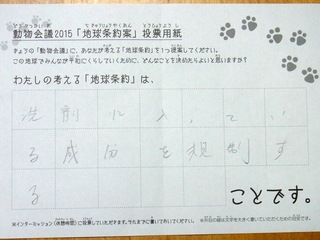 動物会議2015「地球条約案」投票用紙
きょうの「動物会議」に、あなたが考える「地球条約」を1つ提案してください。
この地球でみんなが平和にくらしていくために、どんなことを決めたらよいと思いますか?
わたしの考える「地球条約」は、
洗剤に入ってい
る成分を規制す
る
ことです。